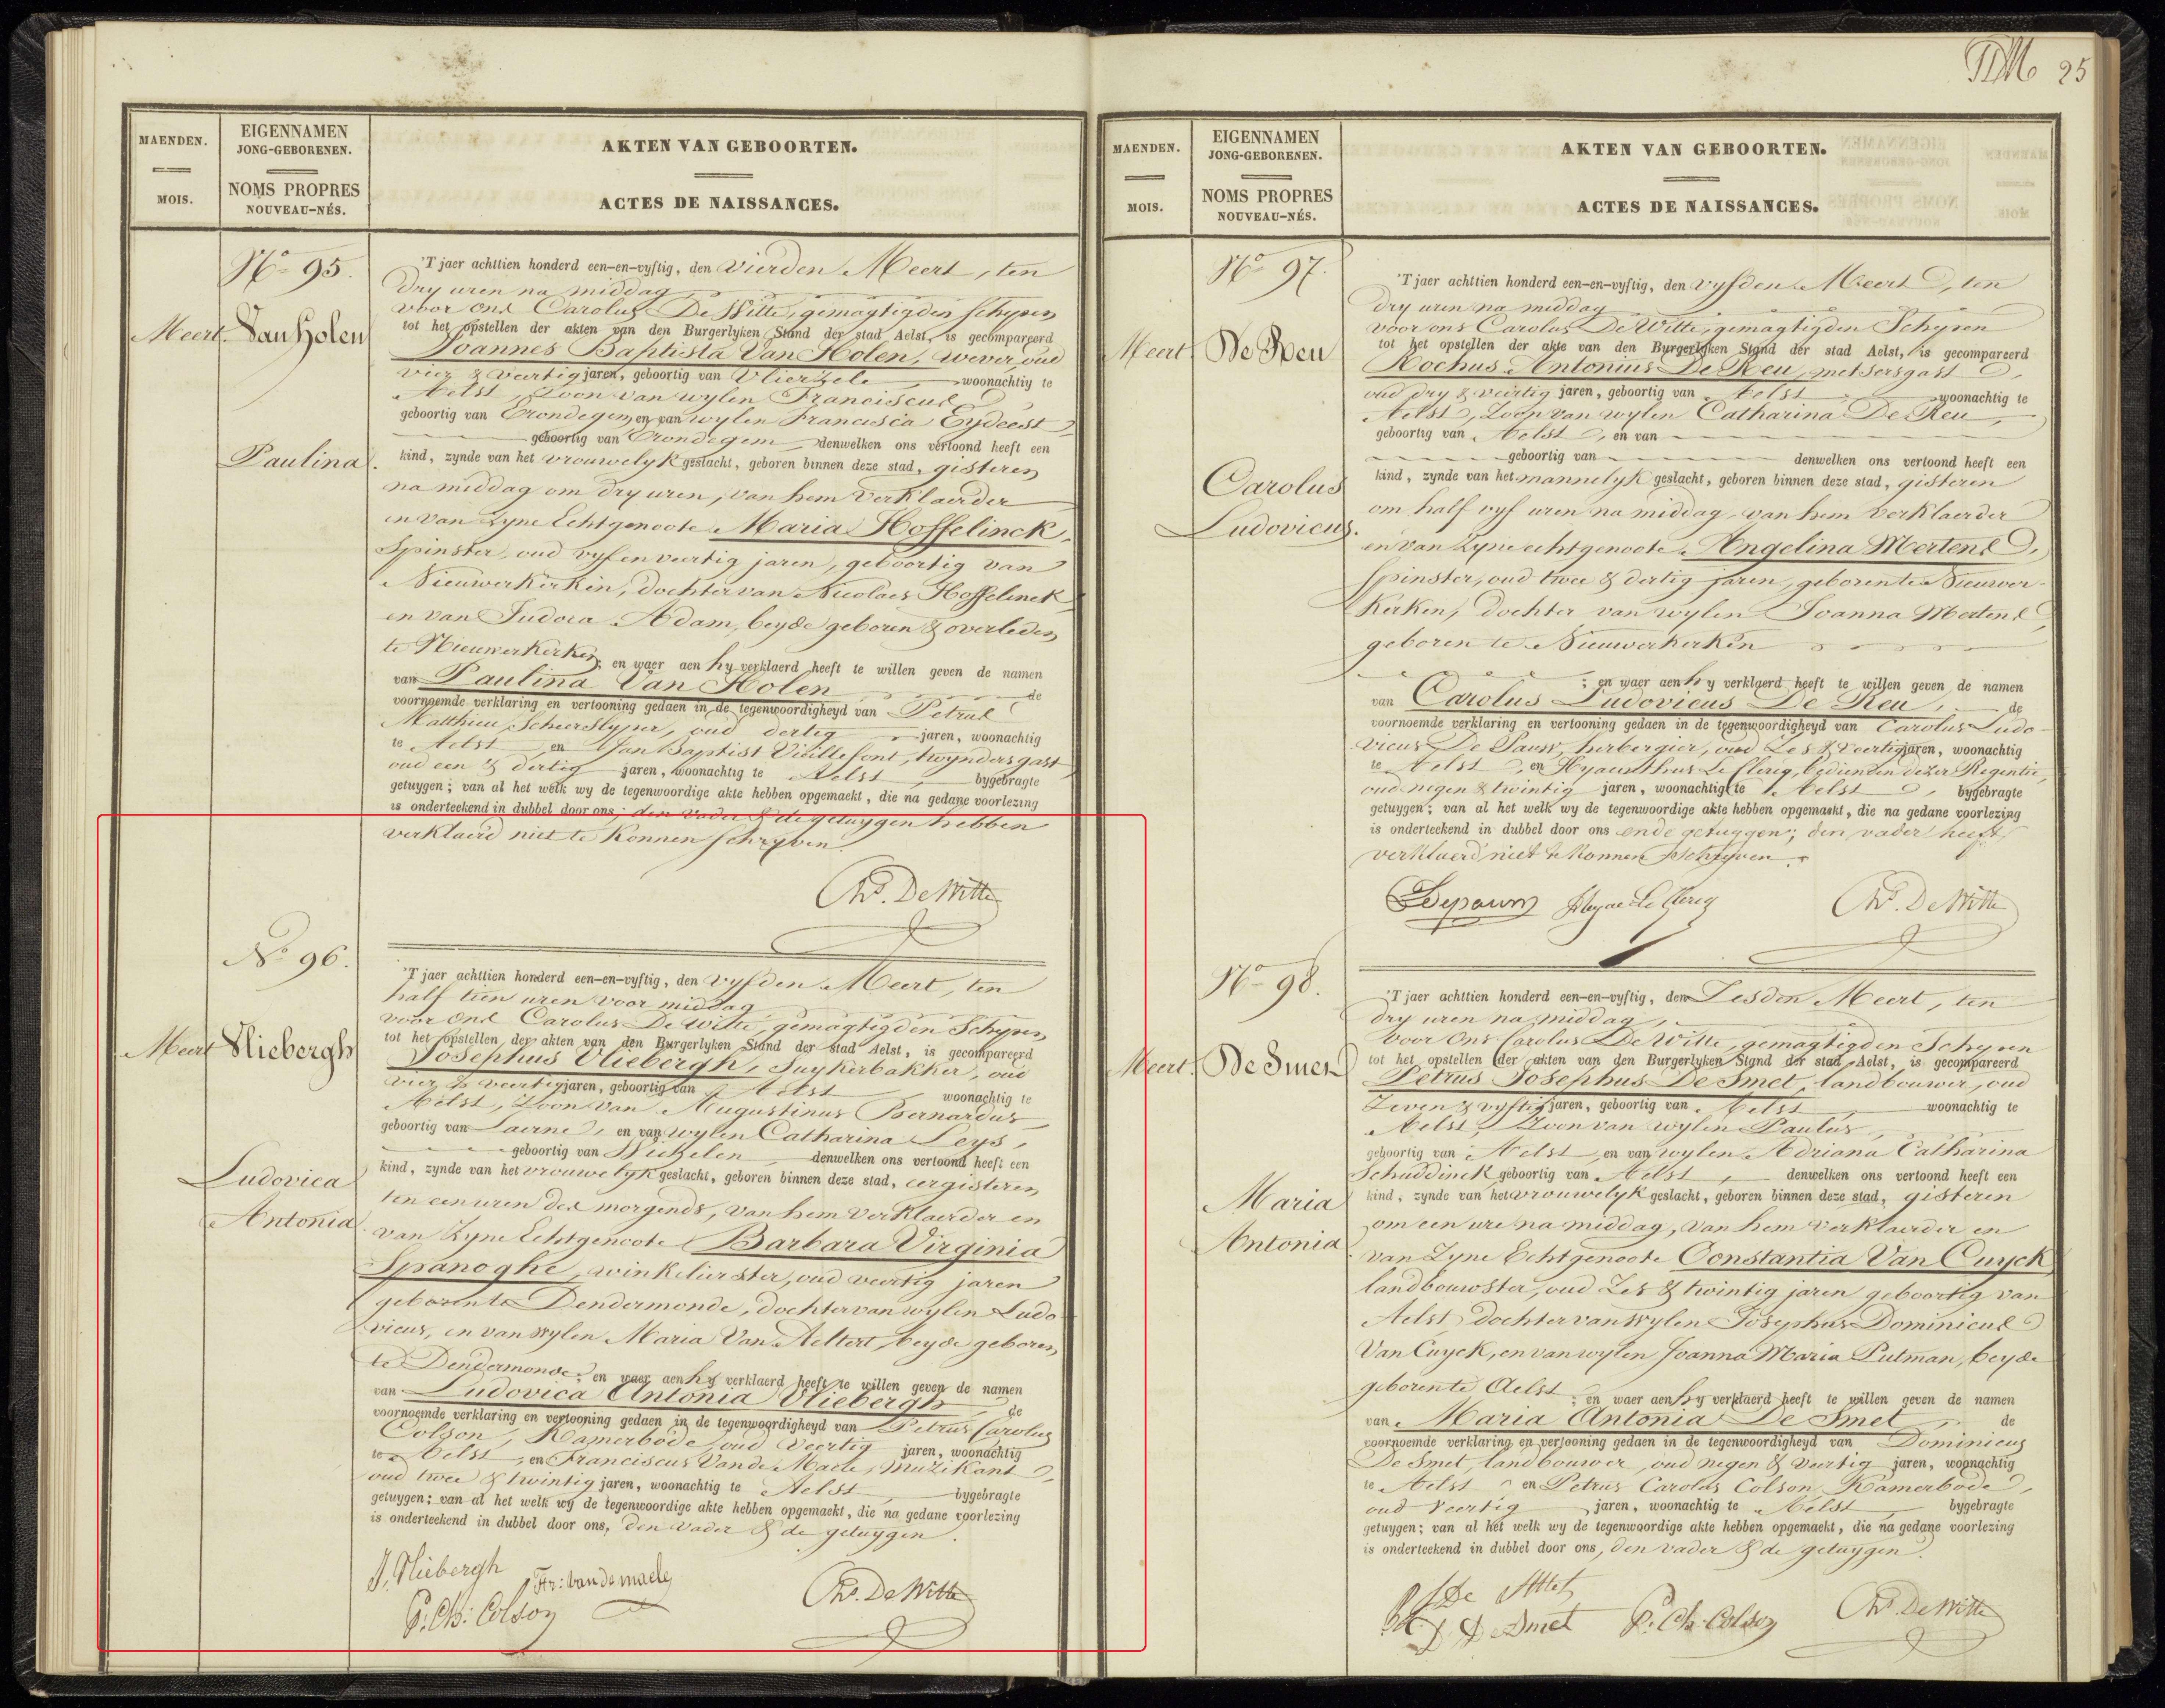 TDM 25
MAENDEN.
MOIS.
EIGENNAMEN
JONG-GEBORENEN.
NOMS PROPRES
NOUVEAU-NÉS.
AKTEN VAN GEBOORTEN.
ACTES DE NAISSANCES.
Nº 95.
Meert. Van Holen
Paulina.
'T jaer achttien honderd een-en-vyftig, den vierden Meert, ten
dry uren na middag
voor ons Carolus De Witte, gemagtigden Schepen
tot het opstellen der akten van den Burgerlyken Stand der stad Aelst, is gecompareerd
Joannes Baptista Van Holen, wever, oud
vier & veertig jaren, geboortig van Vlierzele woonachtig te
Aelst, Zoon van wylen Franciscus
geboortig van Erondegem, en van wylen Francisca Eydeest
geboortig van Erondegem denwelken ons vertoond heeft een
kind, zynde van het vrouwelyk geslacht, geboren binnen deze stad, gisteren
na middag om dry uren, van hem verklaerder
en van zyne Echtgenoote Maria Hoffelinck,
Spinster, oud vyf en veertig jaren, geboortig van
Nieuwerkerken, dochter van Nicolaes Hoffelinck
en van Judoca Adam, beyde geboren & overleden
te Nieuwerkerken; en waer aen hy verklaerd heeft te willen geven de namen
van Paulina Van Holen de
voornoemde verklaring en vertooning gedaen in de tegenwoordigheyd van Petrus
Matthieu, Scheerslyper, oud dertig jaren, woonachtig
te Aelst en Jan Baptist Vieillefont, twyndersgast
oud een & dertig jaren, woonachtig te Aelst, bygebragte
getuygen; van al het welk wy de tegenwoordige akte hebben opgemaekt, die na gedane voorlezing
is onderteekend in dubbel door ons; den vader & de getuygen hebben
verklaerd niet te konnen schryven.
Chs. De Witte
Nº 96.
Meert Vliebergh
Ludovica
Antonia.
'T jaer achttien honderd een-en-vyftig, den vyfden Meert, ten
half tien uren voor middag
voor ons Carolus De Witte, gemagtigden Schepen
tot het opstellen der akten van den Burgerlyken Stand der stad Aelst, is gecompareerd
Josephus Vliebergh, Suykerbakker, oud
vier & veertig jaren, geboortig van Aelst woonachtig te
Aelst, Zoon van Augustinus Bernardus
geboortig van Laerne, en van wylen Catharina Leys,
geboortig van Wichelen denwelken ons vertoond heeft een
kind, zynde van het vrouwelyk geslacht, geboren binnen deze stad, eergisteren
ten een uren des morgends, van hem verklaerder en
van zyne Echtgenoote Barbara Virginia
Spanoghe, winkelierster, oud veertig jaren
geboren te Dendermonde, dochter van wylen Ludo
vicus, en van wylen Maria Van Aeltert, beyde geboren
te Dendermonde; en waer aen hy verklaerd heeft te willen geven de namen
van Ludovica Antonia Vliebergh, de
voornoemde verklaring en vertooning gedaen in de tegenwoordigheyd van Petrus Carolus
Colson, Kamerbode, oud veertig jaren, woonachtig
te Aelst, en Franciscus Van de Maele, Muzikant
oud twee & twintig jaren, woonachtig te Aelst, bygebragte
getuygen; van al het welk wy de tegenwoordige akte hebben opgemaekt, die na gedane voorlezing
is onderteekend in dubbel door ons, den vader & de getuygen.
J. Vliebergh Fr: van de maele Chs. De Witte
P. Ch: Colson
MAENDEN.
MOIS.
EIGENNAMEN
JONG-GEBORENEN.
NOMS PROPRES
NOUVEAU-NÉS.
AKTEN VAN GEBOORTEN.
ACTES DE NAISSANCES.
Nº 97.
Meert. De Reu
Carolus
Ludovicus.
'T jaer achttien honderd een-en-vyftig, den vyfden Meert, ten
dry uren na middag
voor ons Carolus De Witte, gemagtigden Schepen
tot het opstellen der akte van den Burgerlyken Stand der stad Aelst, is gecompareerd
Rochus Antonius De Reu, metsersgast,
oud dry & veertig jaren, geboortig van Aelst woonachtig te
Aelst, Zoon van wylen Catharina De Reu,
geboortig van Aelst, en van
geboortig van denwelken ons vertoond heeft een
kind, zynde van het mannelyk geslacht, geboren binnen deze stad, gisteren
om half vyf uren na middag, van hem verklaerder
en van zyne echtgenoote Angelina Mertens,
Spinster, oud twee & dertig jaren, geboren te Nieuwer-
kerken, dochter van wylen Joanna Mertens,
geboren te Nieuwerkerken
; en waer aen hy verklaerd heeft te willen geven de namen
van Carolus Ludovicus De Reu, de
voornoemde verklaring en vertooning gedaen in de tegenwoordigheyd van Carolus Ludo-
vicus De Pauw, herbergier, oud zes & veertig jaren, woonachtig
te Aelst, en Hyacinthus Le Clercq, bedienden dezer Regentie,
oud negen & twintig jaren, woonachtig te Aelst, bygebragte
getuygen; van al het welk wy de tegenwoordige akte hebben opgemaekt, die na gedane voorlezing
is onderteekend in dubbel door ons ende getuygen; den vader heeft
verklaerd niet te konnen schryven.
Depauw Hyac Le Clercq Chs. De Witte
Nº 98.
Meert. De Smet
Maria
Antonia.
'T jaer achttien honderd een-en-vyftig, den Zesden Meert, ten
dry uren na middag,
voor ons Carolus De Witte, gemagtigden Schepen
tot het opstellen der akten van den Burgerlyken Stand der stad Aelst, is gecompareerd
Petrus Josephus De Smet, landbouwer, oud
Zeven & vyftig jaren, geboortig van Aelst, woonachtig te
Aelst, Zoon van wylen Paulus,
geboortig van Aelst, en van wylen Adriana Catharina
Schuddinck, geboortig van Aelst, denwelken ons vertoond heeft een
kind, zynde van het vrouwelyk geslacht, geboren binnen deze stad, gisteren
om een ure na middag, van hem verklaerder en
van Zyne Echtgenoote Constantia Van Cuyck
landbouwster, oud Zes & twintig jaren geboortig van
Aelst, Dochter van wylen Josephus Dominicus
Van Cuyck, en van wylen Joanna Maria Putman, beyde
geboren te Aelst; en waer aen hy verklaerd heeft te willen geven de namen
van Maria Antonia De Smet, de
voornoemde verklaring en vertooning gedaen in de tegenwoordigheyd van Dominicus
De Smet, landbouwer, oud negen & veertig jaren, woonachtig
te Aelst en Petrus Carolus Colson, Kamerbode,
oud veertig jaren, woonachtig te Aelst, bygebragte
getuygen; van al het welk wy de tegenwoordige akte hebben opgemaekt, die na gedane voorlezing
is onderteekend in dubbel door ons, den vader & de getuygen.
De Smet
D De Smet P. Ch. Colson Chs. De Witte